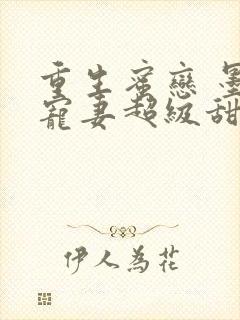 重生蜜戀 墨
寵妻超級甜
伊人為花